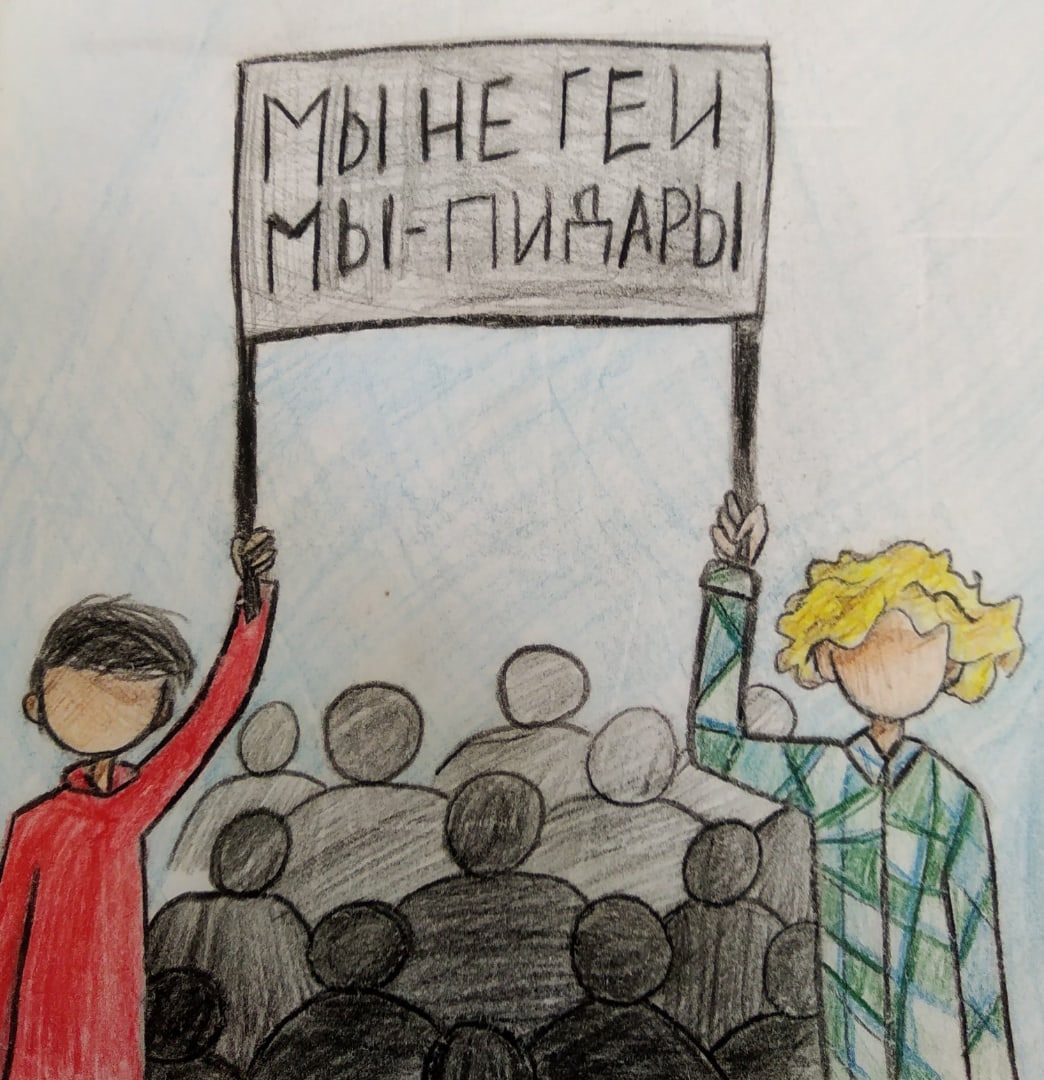 МЫ НЕ ГЕИ
МЫ-ПИДАРЫ